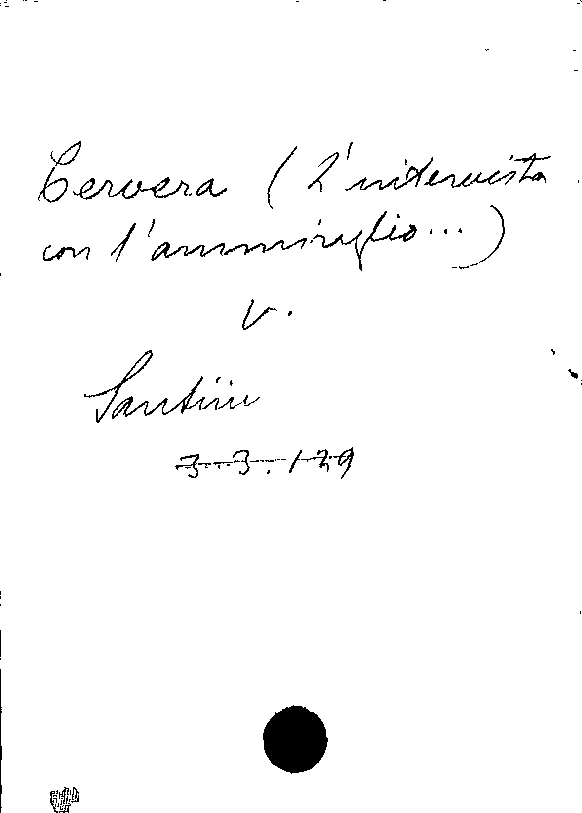 Cervera (L'intervista
con l'ammiraglio...)
v.
Santini
3.3.129